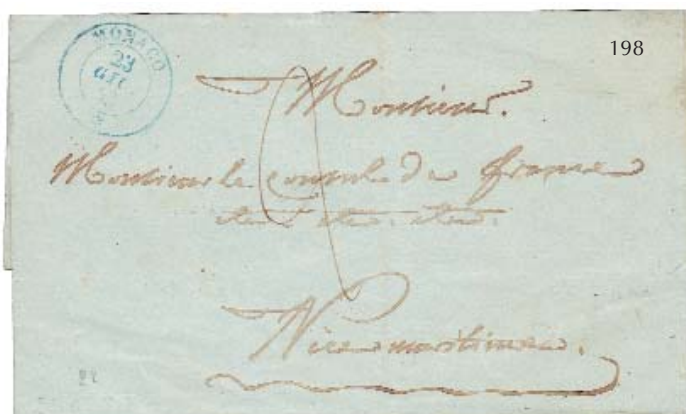 198
MONACO
23
GIU
Monsieur.
Monsieur le Consul de france
Nice maritime.